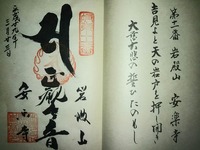 第十一番 岩殿山 安楽寺
吉見よと天の岩戸を押し開き
大慈大悲の誓ひたのもし
岩殿山
正観世音
安楽寺
平成十九年